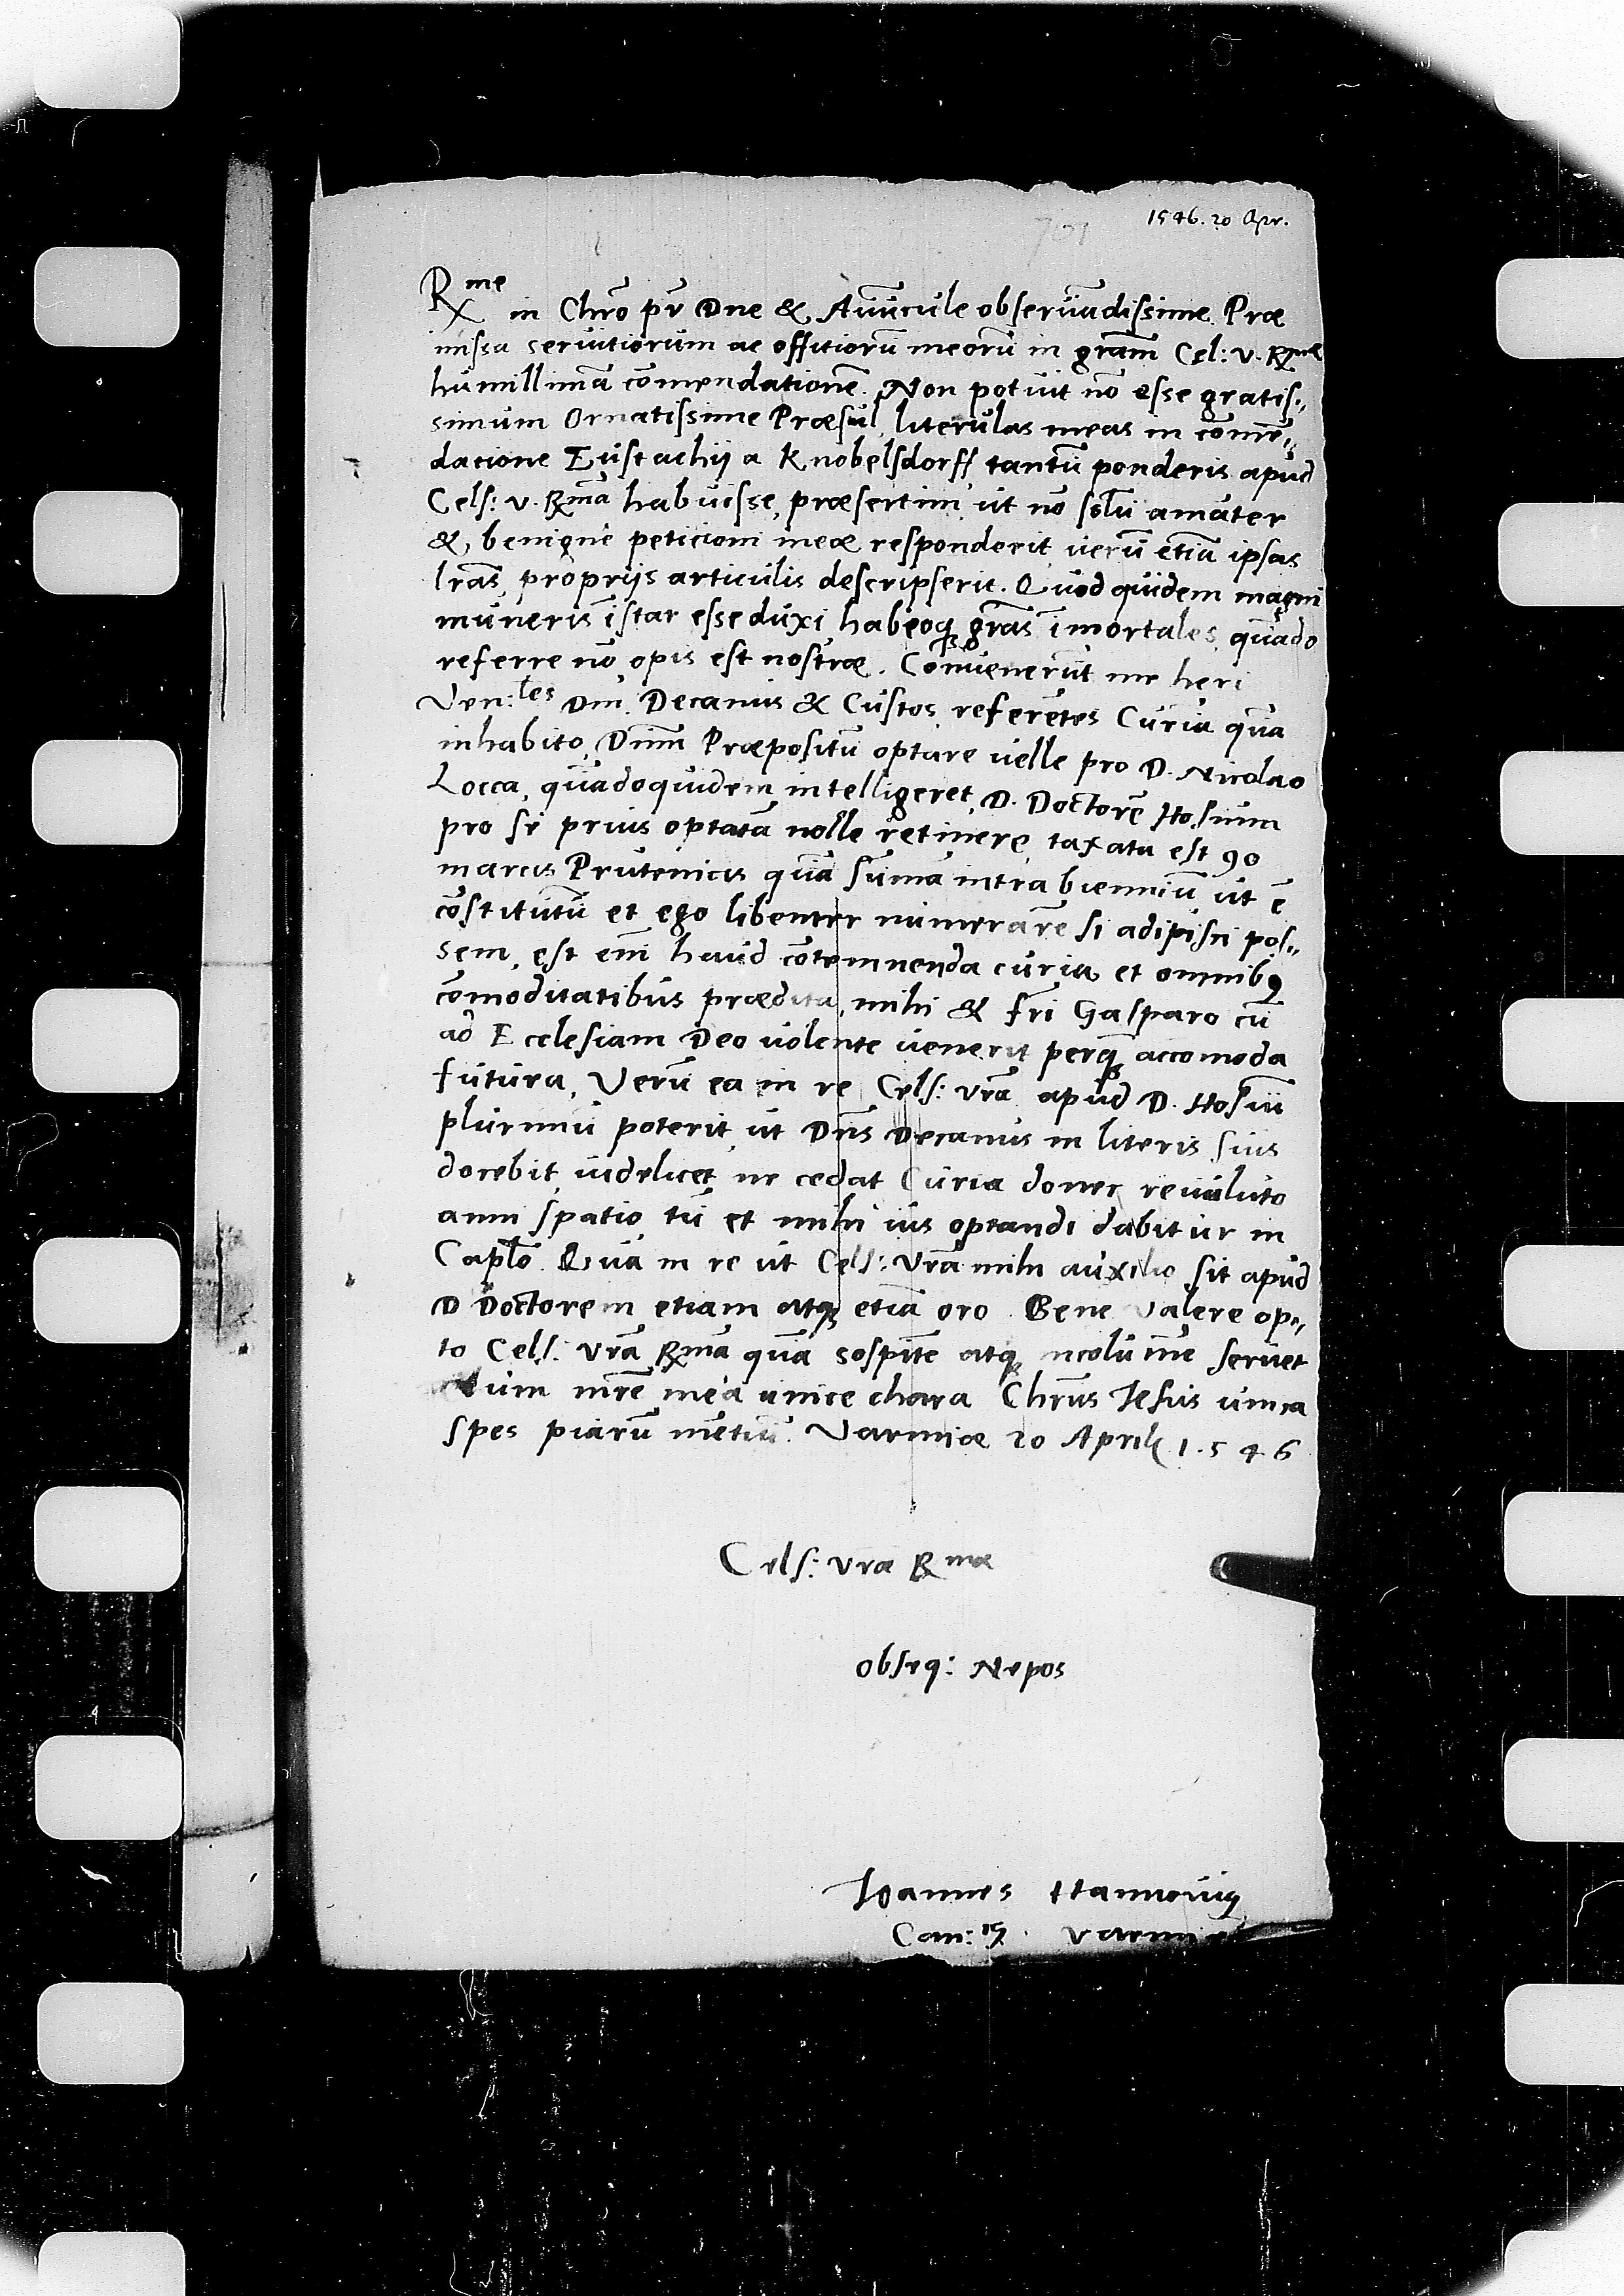 1546. 20 Apr.
701
R^me in Chr̄o pr̄ Dne & Avūcule observādissime. Præ
missa servitiorum ac offitiorū meorū in gr̄am Cel: v. R^me
humillimā com̄endationē. Non potuit nō esse gratis„
simum Ornatissime Præsul, literulas meas in com̄ē„
datione Eustachij a Knobelsdorff, tantū ponderis apud
Cels: v. R^mā habuisse, præsertim, ut nō solū amāter
&, benignè peticioni meæ responderit, verū etiā ipsas
lr̄as, proprijs articulis descripserit. Quod quidem magni
muneris īstar esse duxi habeoq; gr̄as īmortales, quādo
referre nō opis est nostræ. Convenerūt me heri
Ven:^les Dni. Decanus & Custos referētes Curiā quā
inhabito, Dnm̄ Præpositū optare velle pro D. Nicolao
Locca, quādoquidem intelligeret, D. Doctorē Hosium
pro se prius optatā nolle retinere, taxata est 90
marcis Prutenicis quā sum̄ā intra bienniū ut ē
cōstitutū et ego libenter numerarē si adipisci pos„
sem, est em̄ haud cōtemnenda curia et omnibꝰ
cōmoditatibus prædita, mihi & fr̄i Gasparo cū
ad Ecclesiam Deo volente venerit perq; accomoda
futura, Verū ea in re Cels: vr̄a apud D. Hosiū
plurimū poterit, ut Dn̄s Decanus in literis suis
docebit, videlicet, ne cedat Curia donec revoluto
anni spatio, tū et mihi ius optandi dabitur in
Capl̄o. Qua in re ut Cels: Vr̄a mihi auxilio sit apud
D Doctorem etiam atq; etiā oro. Bene Valere op„
to Cels: vr̄ā R^mā quā sospitē atq; incolumē servet
cum mr̄e meā unice chara Chr̄us Jesus unica
spes piarū mētiū. Varmiæ 20 Aprilis 1.5 4 6
Cels: vræ R^mæ
obseq: Nepos
Joannes Hannoviꝰ
Can:^us Varmien